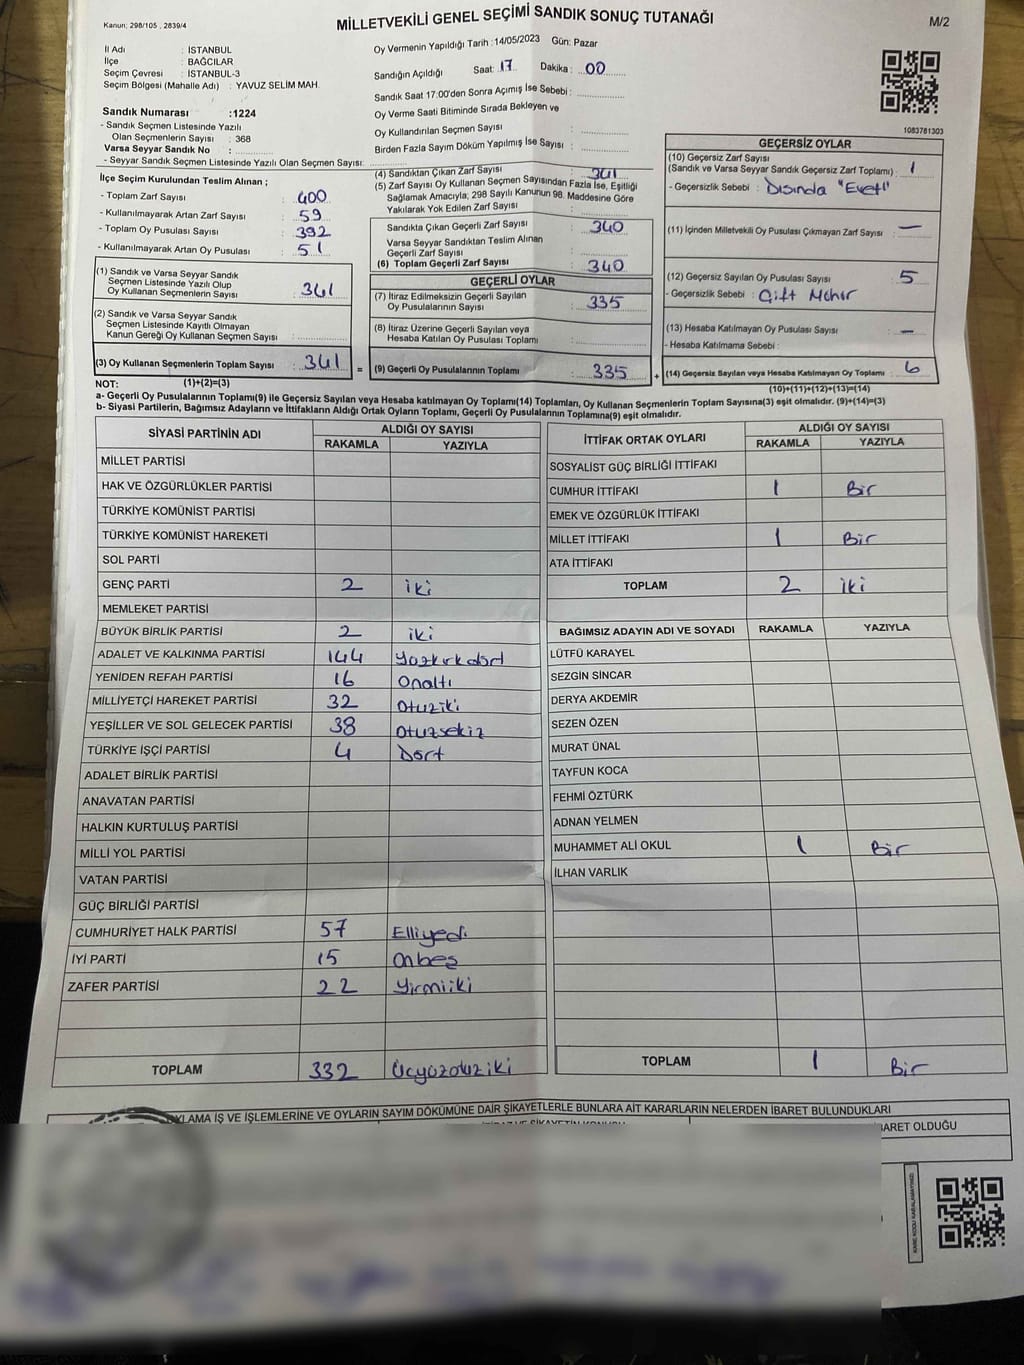 Kanun: 298/105 , 2839/4
MİLLETVEKİLİ GENEL SEÇİMİ SANDIK SONUÇ TUTANAĞI
M/2
İl Adı : İSTANBUL
İlçe : BAĞCILAR
Seçim Çevresi : İSTANBUL-3
Seçim Bölgesi (Mahalle Adı) : YAVUZ SELİM MAH.
Sandık Numarası :1224
- Sandık Seçmen Listesinde Yazılı
Olan Seçmenlerin Sayısı : 368
Varsa Seyyar Sandık No :
- Seyyar Sandık Seçmen Listesinde Yazılı Olan Seçmen Sayısı:
Oy Vermenin Yapıldığı Tarih :14/05/2023 Gün: Pazar
Sandığın Açıldığı Saat: 17 Dakika : 00
Sandık Saat 17:00'den Sonra Açımış İse Sebebi :
Oy Verme Saati Bitiminde Sırada Bekleyen ve
Oy Kullandırılan Seçmen Sayısı :
Birden Fazla Sayım Döküm Yapılmış İse Sayısı :
1083781303
İlçe Seçim Kurulundan Teslim Alınan ;
- Toplam Zarf Sayısı : 400
- Kullanılmayarak Artan Zarf Sayısı : 59
- Toplam Oy Pusulası Sayısı : 392
- Kullanılmayarak Artan Oy Pusulası : 51
(1) Sandık ve Varsa Seyyar Sandık
Seçmen Listesinde Yazılı Olup
Oy Kullanan Seçmenlerin Sayısı : 341
(2) Sandık ve Varsa Seyyar Sandık
Seçmen Listesinde Kayıtlı Olmayan
Kanun Gereği Oy Kullanan Seçmen Sayısı :
(3) Oy Kullanan Seçmenlerin Toplam Sayısı : 341 =
(1)+(2)=(3)
(4) Sandıktan Çıkan Zarf Sayısı : 341
(5) Zarf Sayısı Oy Kullanan Seçmen Sayısından Fazla İse, Eşitliği
Sağlamak Amacıyla, 298 Sayılı Kanunun 98. Maddesine Göre
Yakılarak Yok Edilen Zarf Sayısı :
Sandıkta Çıkan Geçerli Zarf Sayısı : 340
Varsa Seyyar Sandıktan Teslim Alınan
Geçerli Zarf Sayısı :
(6) Toplam Geçerli Zarf Sayısı : 340
GEÇERLİ OYLAR
(7) İtiraz Edilmeksizin Geçerli Sayılan
Oy Pusulalarının Sayısı : 335
(8) İtiraz Üzerine Geçerli Sayılan veya
Hesaba Katılan Oy Pusulası Toplamı :
(9) Geçerli Oy Pusulalarının Toplamı : 335 +
GEÇERSİZ OYLAR
(10) Geçersiz Zarf Sayısı
(Sandık ve Varsa Seyyar Sandık Geçersiz Zarf Toplamı) : 1
- Geçersizlik Sebebi : Dışında "Evet"
(11) İçinden Milletvekili Oy Pusulası Çıkmayan Zarf Sayısı : —
(12) Geçersiz Sayılan Oy Pusulası Sayısı : 5
- Geçersizlik Sebebi : Çift Mühür
(13) Hesaba Katılmayan Oy Pusulası Sayısı : —
- Hesaba Katılmama Sebebi :
(14) Geçersiz Sayılan veya Hesaba Katılmayan Oy Toplamı : 6
(10)+(11)+(12)+(13)=(14)
NOT:
a- Geçerli Oy Pusulalarının Toplamı(9) ile Geçersiz Sayılan veya Hesaba katılmayan Oy Toplamı(14) Toplamları, Oy Kullanan Seçmenlerin Toplam Sayısına(3) eşit olmalıdır. (9)+(14)=(3)
b- Siyasi Partilerin, Bağımsız Adayların ve İttifakların Aldığı Ortak Oyların Toplamı, Geçerli Oy Pusulalarının Toplamına(9) eşit olmalıdır.
SİYASİ PARTİNİN ADI ALDIĞI OY SAYISI
RAKAMLA YAZIYLA
MİLLET PARTİSİ
HAK VE ÖZGÜRLÜKLER PARTİSİ
TÜRKİYE KOMÜNİST PARTİSİ
TÜRKİYE KOMÜNİST HAREKETİ
SOL PARTİ
GENÇ PARTİ 2 iki
MEMLEKET PARTİSİ
BÜYÜK BİRLİK PARTİSİ 2 iki
ADALET VE KALKINMA PARTİSİ 144 Yüzkırkdört
YENİDEN REFAH PARTİSİ 16 Onaltı
MİLLİYETÇİ HAREKET PARTİSİ 32 Otuziki
YEŞİLLER VE SOL GELECEK PARTİSİ 38 Otuzsekiz
TÜRKİYE İŞÇİ PARTİSİ 4 Dört
ADALET BİRLİK PARTİSİ
ANAVATAN PARTİSİ
HALKIN KURTULUŞ PARTİSİ
MİLLİ YOL PARTİSİ
VATAN PARTİSİ
GÜÇ BİRLİĞİ PARTİSİ
CUMHURİYET HALK PARTİSİ 57 Elliyedi
İYİ PARTİ 15 Onbeş
ZAFER PARTİSİ 22 Yirmiiki
TOPLAM 332 Üçyüzotuziki
İTTİFAK ORTAK OYLARI ALDIĞI OY SAYISI
RAKAMLA YAZIYLA
SOSYALİST GÜÇ BİRLİĞİ İTTİFAKI
CUMHUR İTTİFAKI 1 Bir
EMEK VE ÖZGÜRLÜK İTTİFAKI
MİLLET İTTİFAKI 1 Bir
ATA İTTİFAKI
TOPLAM 2 iki
BAĞIMSIZ ADAYIN ADI VE SOYADI RAKAMLA YAZIYLA
LÜTFÜ KARAYEL
SEZGİN SİNCAR
DERYA AKDEMİR
SEZEN ÖZEN
MURAT ÜNAL
TAYFUN KOCA
FEHMİ ÖZTÜRK
ADNAN YELMEN
MUHAMMET ALİ OKUL 1 Bir
İLHAN VARLIK
TOPLAM 1 Bir
KLAMA İŞ VE İŞLEMLERİNE VE OYLARIN SAYIM DÖKÜMÜNE DAİR ŞİKAYETLERLE BUNLARA AİT KARARLARIN NELERDEN İBARET BULUNDUKLARI
BARET OLDUĞU
KARE KODU KARALAMAYINIZ!